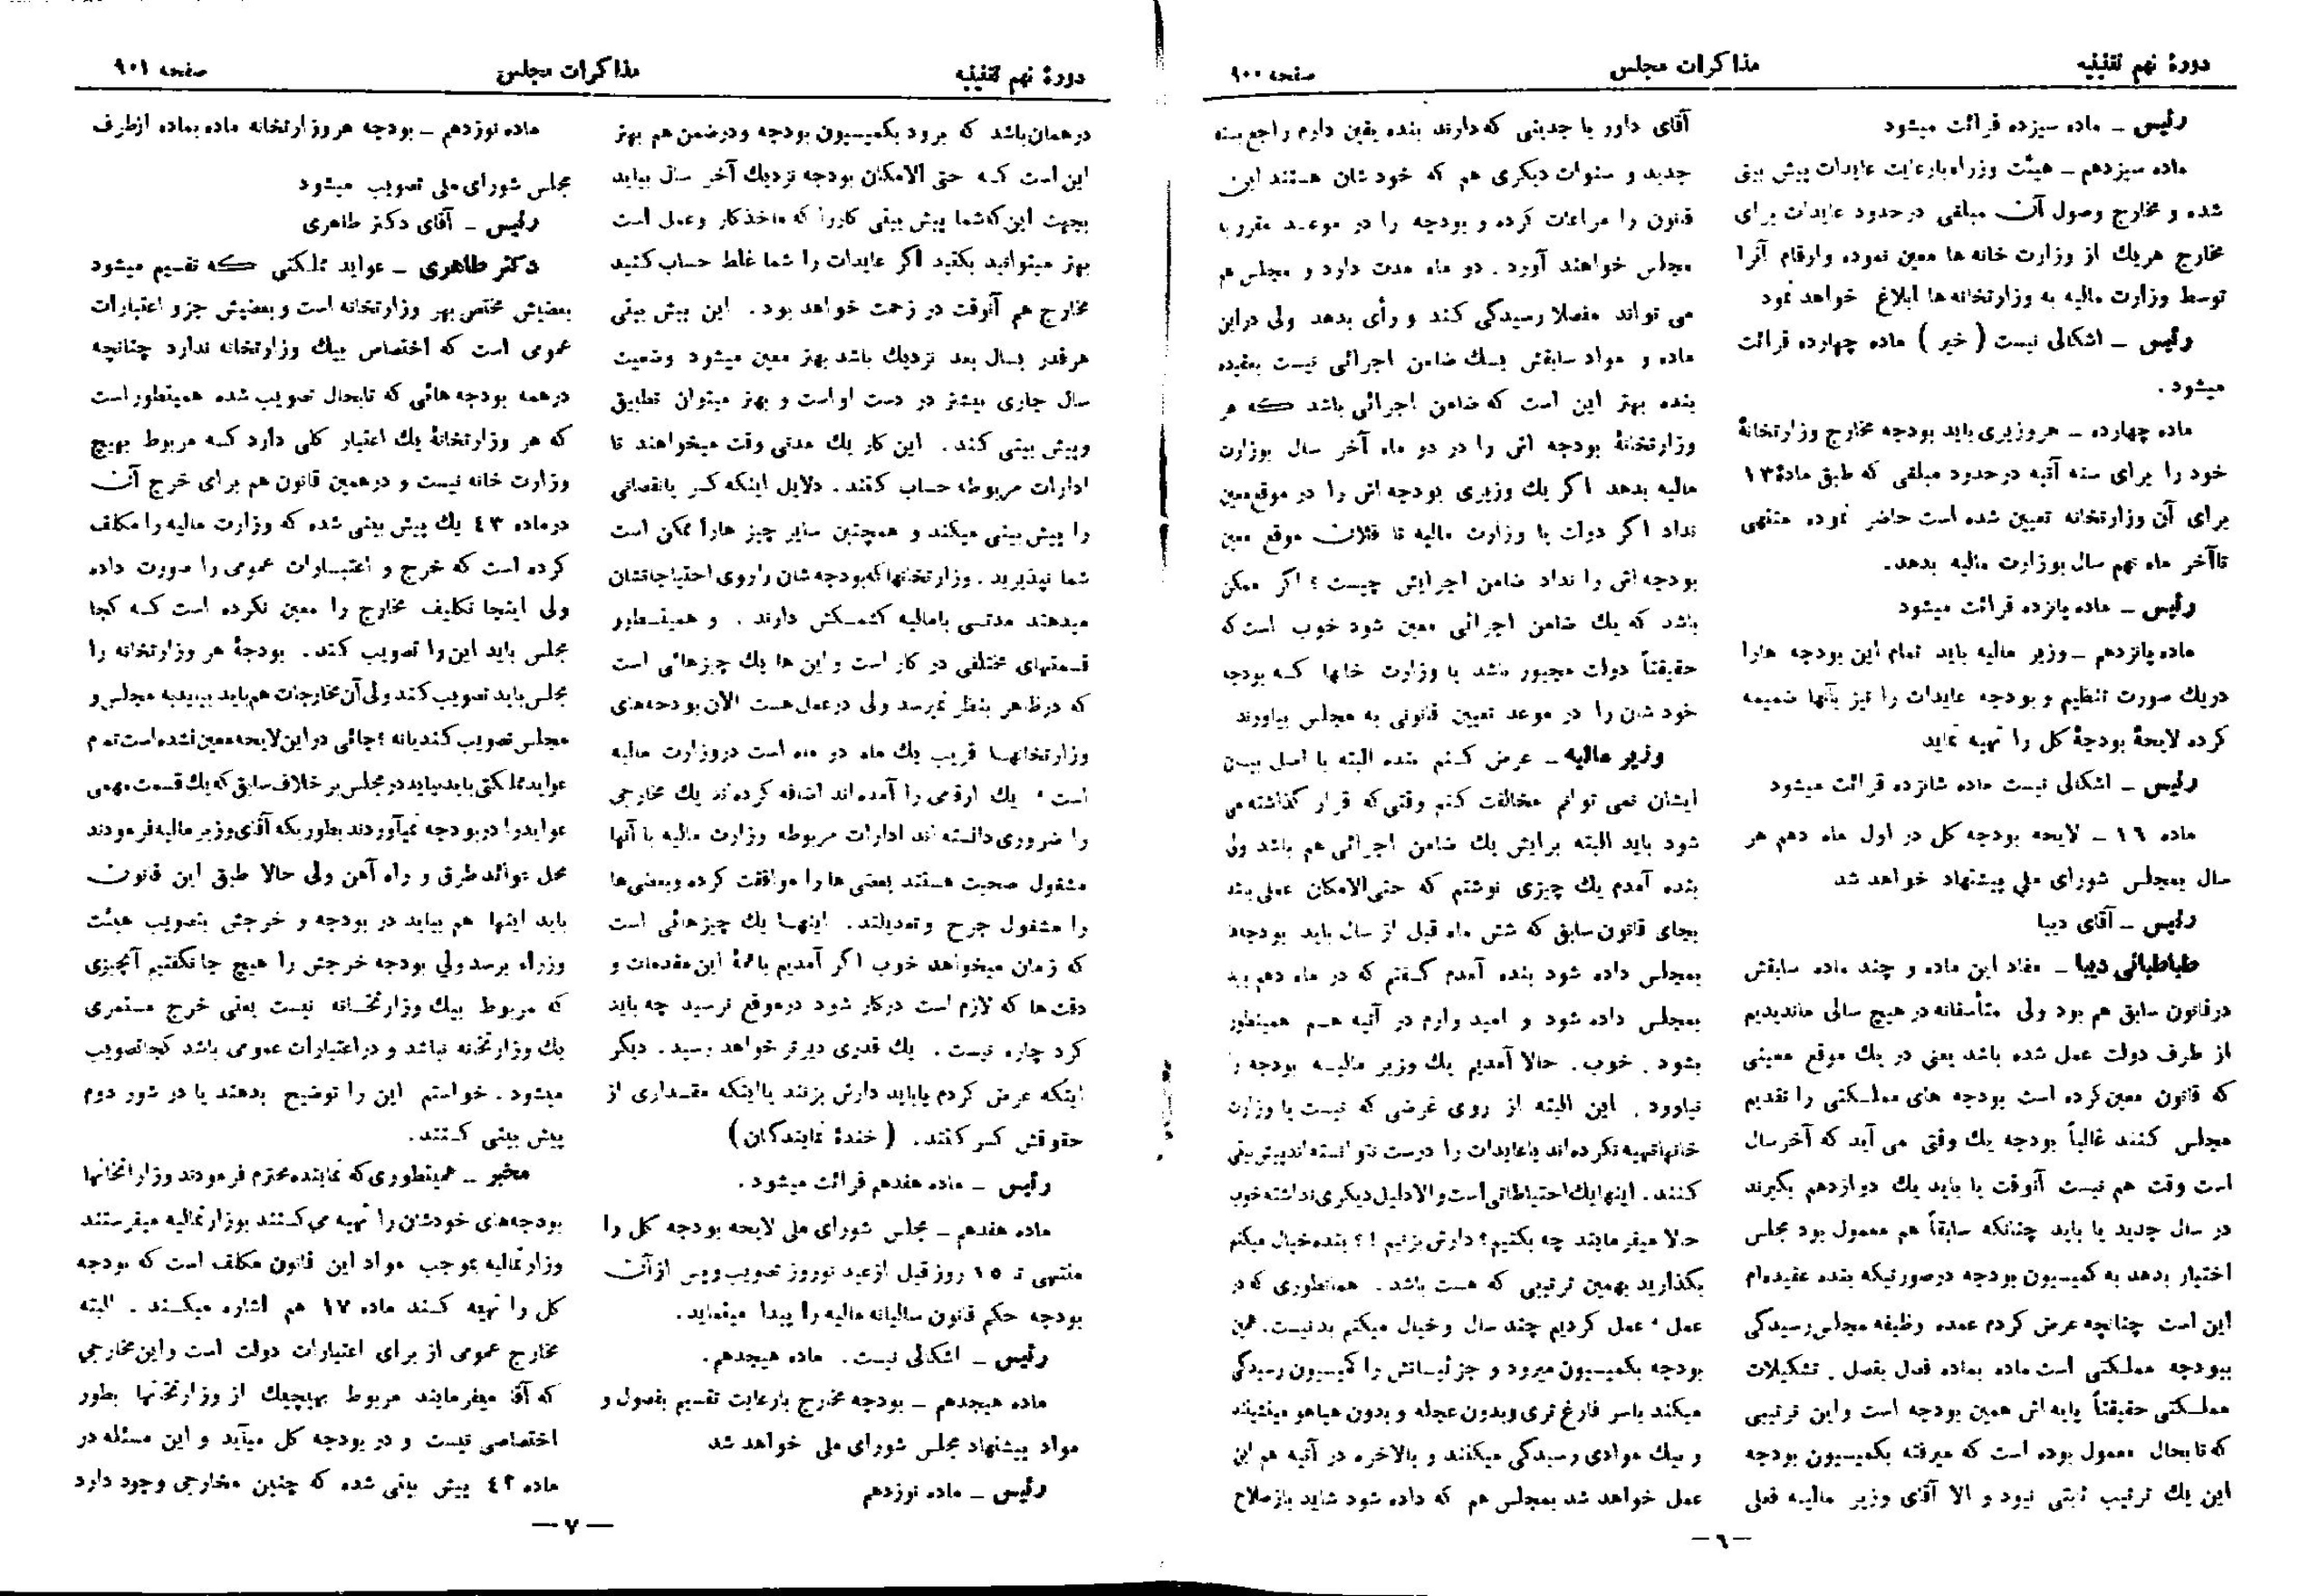 دورهٔ نهم تقنینیه
مذاکرات مجلس
صفحه ۹۰۰
رئیس ـ ماده سیزده قرائت میشود
ماده سیزدهم ـ هیئت وزراء بارعایت عایدات پیش بینی
شده و مخارج وصول آن مبلغی در حدود عایدات برای
مخارج هریك از وزارت خانه ها معین نموده و ارقام آنرا
توسط وزارت مالیه به وزارتخانه ها ابلاغ خواهد نمود
رئیس ـ اشکالی نیست ( خیر ) ماده چهارده قرائت
میشود .
ماده چهارده ـ هر وزیری باید بودجه مخارج وزارتخانهٔ
خود را برای سنه آتیه در حدود مبلغی که طبق مادهٔ ۱۳
برای آن وزارتخانه تعیین شده است حاضر نموده منتهی
تا آخر ماه نهم سال بوزارت مالیه بدهد.
رئیس ـ ماده پانزده قرائت میشود
ماده پانزدهم ـ وزیر مالیه باید تمام این بودجه هارا
دریك صورت تنظیم و بودجه عایدات را نیز بآنها ضمیمه
کرده لایحهٔ بودجهٔ کل را تهیه نماید
رئیس ـ اشکالی نیست ماده شانزده قرائت میشود
ماده ۱۶ ـ لایحه بودجه کل در اول ماه دهم هر
سال بمجلس شورای ملی پیشنهاد خواهد شد
رئیس ـ آقای دیبا
طباطبائی دیبا ـ مفاد این ماده و چند ماده سابقش
در قانون سابق هم بود ولی متأسفانه در هیچ سالی ما ندیدیم
از طرف دولت عمل شده باشد یعنی در یك موقع معینی
که قانون معین کرده است بودجه های مملکتی را تقدیم
مجلس کنند غالباً بودجه یك وقتی می آید که آخر سال
است وقت هم نیست آنوقت یا باید یك دوازدهم بگیرند
در سال جدید یا باید چنانکه سابقاً هم معمول بود مجلس
اختیار بدهد به کمیسیون بودجه درصورتیکه بنده عقیده‌ام
این است چنانچه عرض کردم عمده وظیفه مجلس رسیدگی
ببودجه مملکتی است ماده بماده فصل بفصل . تشکیلات
مملکتی حقیقتاً پایه اش همین بودجه است و این ترتیبی
که تا بحال معمول بوده است که میرفته بکمیسیون بودجه
این یك ترتیب ثابتی نبود و الا آقای وزیر مالیه فعلی
آقای داور با جدیتی که دارند بنده یقین دارم راجع بسنه
جدید و سنوات دیگری هم که خودشان هستند این
قانون را مراعات کرده و بودجه را در موعد مقرر به
مجلس خواهند آورد . دو ماه مدت دارد و مجلس هم
می تواند مفصلا رسیدگی کند و رأی بدهد ولی در این
ماده و مواد سابقش یك ضامن اجرائی نیست بعقیده
بنده بهتر این است که ضامن اجرائی باشد که هر
وزارتخانهٔ بودجه اش را در دو ماه آخر سال بوزارت
مالیه بدهد اگر یك وزیری بودجه اش را در موقع معین
نداد اگر دولت یا وزارت مالیه تا فلان موقع معین
بودجه اش را نداد ضامن اجرایش چیست ؟ اگر ممکن
باشد که یك ضامن اجرائی معین شود خوب است که
حقیقتاً دولت مجبور باشد یا وزارت خانها که بودجه
خودشان را در موعد تعیین قانونی به مجلس بیاورند
وزیر مالیه ـ عرض کنم بنده البته با اصل بیان
ایشان نمی توانم مخالفت کنم وقتی که قرار گذاشته می
شود باید البته برایش یك ضامن اجرائی هم باشد ولی
بنده آمدم یك چیزی نوشتم که حتی الامکان عملی شد
بجای قانون سابق که شش ماه قبل از سال باید بودجه
بمجلس داده شود بنده آمدم گفتم که در ماه دهم باید
بمجلس داده شود و امید وارم در آتیه هم همینطور
بشود . خوب . حالا آمدیم یك وزیر مالیه بودجه را
نیاورد . این البته از روی غرضی که نیست یا وزارت
خانها تهیه نکرده‌اند یا عایدات را درست نتوانسته‌اند پیش بینی
کنند . اینها یك احتیاطاتی است و الا دلیل دیگری نداشته خوب
حالا میفرمایند چه بکنیم ؟ دارش بزنیم !؟ بنده خیال میکنم
بگذارید بهمین ترتیبی که هست باشد . همانطوری که در
عمل عمل کردیم چند سال و خیال میکنم بد نیست . همین
بودجه بکمیسیون میرود و جزئیاتش را کمیسیون رسیدگی
میکند با سر فارغ تری و بدون عجله و بدون هیاهو مینشینند
و بیك موادی رسیدگی میکنند و بالاخره در آتیه هم این
عمل خواهد شد بمجلس هم که داده شود شاید باز صلاح
ـ ۶ ـ
دورهٔ نهم تقنینیه
مذاکرات مجلس
صفحه ۹۰۱
در همان باشد که برود بکمیسیون بودجه و درضمن هم بهتر
این است که حتی الامکان بودجه نزدیك آخر سال بیاید
بجهت این که شما پیش بینی کاررا که مأخذ کار و عمل است
بهتر میتوانید بکنید اگر عایدات را شما غلط حساب کنید
مخارج هم آنوقت در زحمت خواهد بود . این پیش بینی
هرقدر بسال بعد نزدیك باشد بهتر معین میشود وضعیت
سال جاری بیشتر در دست او است و بهتر میتوان تطبیق
و پیش بینی کند . این کار یك مدتی وقت میخواهند تا
ادارات مربوطه حساب کنند . دلایل اینکه کسر یا نقصانی
را پیش بینی میکند و همچنین سایر چیز هارا ممکن است
شما نپذیرید . وزارتخانها که بودجه شان را روی احتیاجاتشان
میدهند مدتی با مالیه کشمکش دارند . و همینطور
قسمتهای مختلفی در کار است و این ها یك چیزهائی است
که در ظاهر بنظر نمیرسد ولی در عمل هست الان بودجه‌های
وزارتخانها قریب یك ماه دو ماه است در وزارت مالیه
است . یك ارقامی را آمده‌اند اضافه کرده‌اند یك مخارجی
را ضروری دانسته اند ادارات مربوطه وزارت مالیه با آنها
مشغول صحبت هستند بعضی ها را موافقت کرده و بعضی ها
را مشغول جرح و تعدیلند . اینها یك چیزهائی است
که زمان میخواهد خوب اگر آمدیم با همهٔ این مقدمات و
دقت ها که لازم است درکار شود درموقع نرسید چه باید
کرد چاره نیست . یك قدری دیرتر خواهد رسید . دیگر
اینکه عرض کردم یا باید دارش بزنند یا اینکه مقداری از
حقوقش کسر کنند . ( خندهٔ نمایندگان )
رئیس ـ ماده هفدهم قرائت میشود .
ماده هفدهم ـ مجلس شورای ملی لایحه بودجه کل را
منتهی تا ۱۵ روز قبل از عید نوروز تصویب و پس از آن
بودجه حکم قانون سالیانه مالیه را پیدا مینماید.
رئیس ـ اشکالی نیست . ماده هیجدهم .
ماده هیجدهم ـ بودجه مخارج بارعایت تقسیم بفصول و
مواد پیشنهاد مجلس شورای ملی خواهد شد
رئیس ـ ماده نوزدهم
ماده نوزدهم ـ بودجه هر وزارتخانه ماده بماده ازطرف
مجلس شورای ملی تصویب میشود
رئیس ـ آقای دکتر طاهری
دکتر طاهری ـ عواید مملکتی که تقسیم میشود
بعضیش مختص بهر وزارتخانه است و بعضیش جزو اعتبارات
عمومی است که اختصاص بیك وزارتخانه ندارد چنانچه
در همه بودجه هائی که تابحال تصویب شده همینطور است
که هر وزارتخانهٔ یك اعتبار کلی دارد که مربوط بهیچ
وزارت خانه نیست و در همین قانون هم برای خرج آن
در ماده ۴۳ یك پیش بینی شده که وزارت مالیه را مکلف
کرده است که خرج و اعتبارات عمومی را صورت داده
ولی اینجا تکلیف مخارج را معین نکرده است که کجا
مجلس باید این را تصویب کند . بودجهٔ هر وزارتخانه را
مجلس باید تصویب کند ولی آن مخارجات هم باید بیاید به مجلس و
مجلس تصویب کند یا نه ؟ جائی در این لایحه معین نشده است تمام
عواید مملکتی باید بیاید در مجلس بر خلاف سابق که یك قسمت مهمی
عواید را در بودجه نمیآوردند بطوریکه آقای وزیر مالیه فرمودند
محل عوائد طرق و راه آهن ولی حالا طبق این قانون
باید اینها هم بیاید در بودجه و خرجش بتصویب هیئت
وزراء برسد ولی بودجه خرجش را هیچ جا نگفتیم آنچیزی
که مربوط بیك وزارتخانه نیست یعنی خرج مستمری
یك وزارتخانه نباشد و در اعتبارات عمومی باشد کجا تصویب
میشود . خواستم این را توضیح بدهند یا در شور دوم
پیش بینی کنند .
مخبر ـ همینطوری که نماینده محترم فرمودند وزارتخانها
بودجه‌های خودشان را تهیه می کنند بوزارتمالیه میفرستند
وزارتمالیه بموجب مواد این قانون مکلف است که بودجه
کل را تهیه کند ماده ۱۷ هم اشاره میکند . البته
مخارج عمومی از برای اعتبارات دولت است و این مخارجی
که آقا میفرمایند مربوط بهیچیك از وزارتخانها بطور
اختصاصی نیست و در بودجه کل میآید و این مسئله در
ماده ۴۲ پیش بینی شده که چنین مخارجی وجود دارد
ـ ۷ ـ